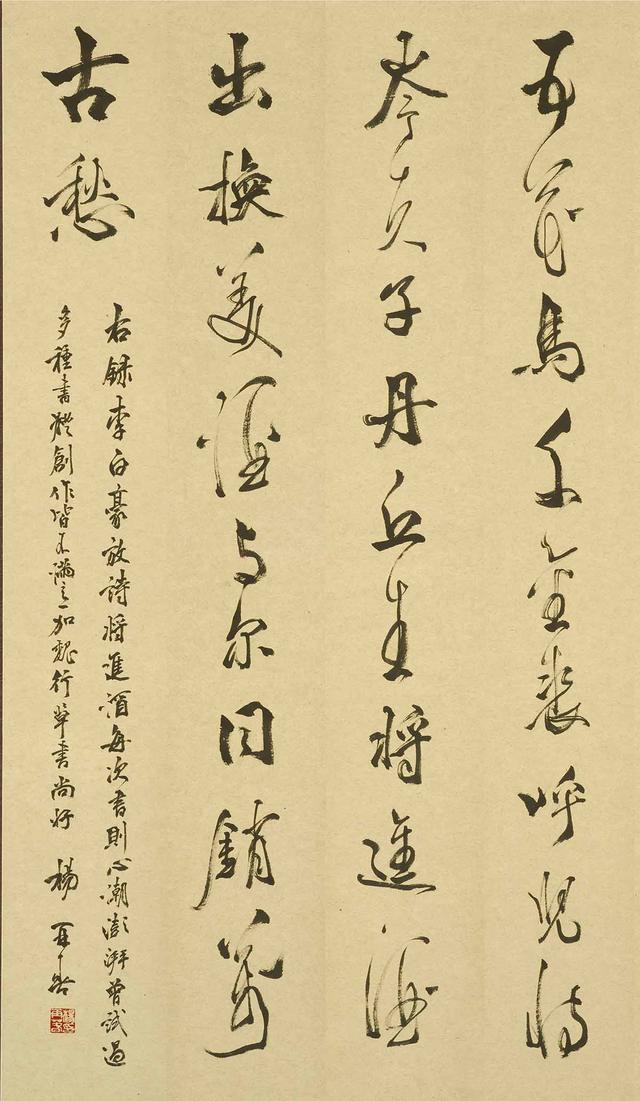 五花馬千金裘呼兒將
岑夫子丹丘生將進酒
出換美酒与尔同銷萬
古愁
右録李白豪放詩將進酒每次書則心潮澎湃曾試過
多種書體創作皆不滿加魏行草書尚好 楊再春